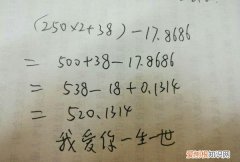 (250×2+38)-17.8686
= 500+38-17.8686
= 538-18+0.1314
= 520.1314
我爱你一生一世